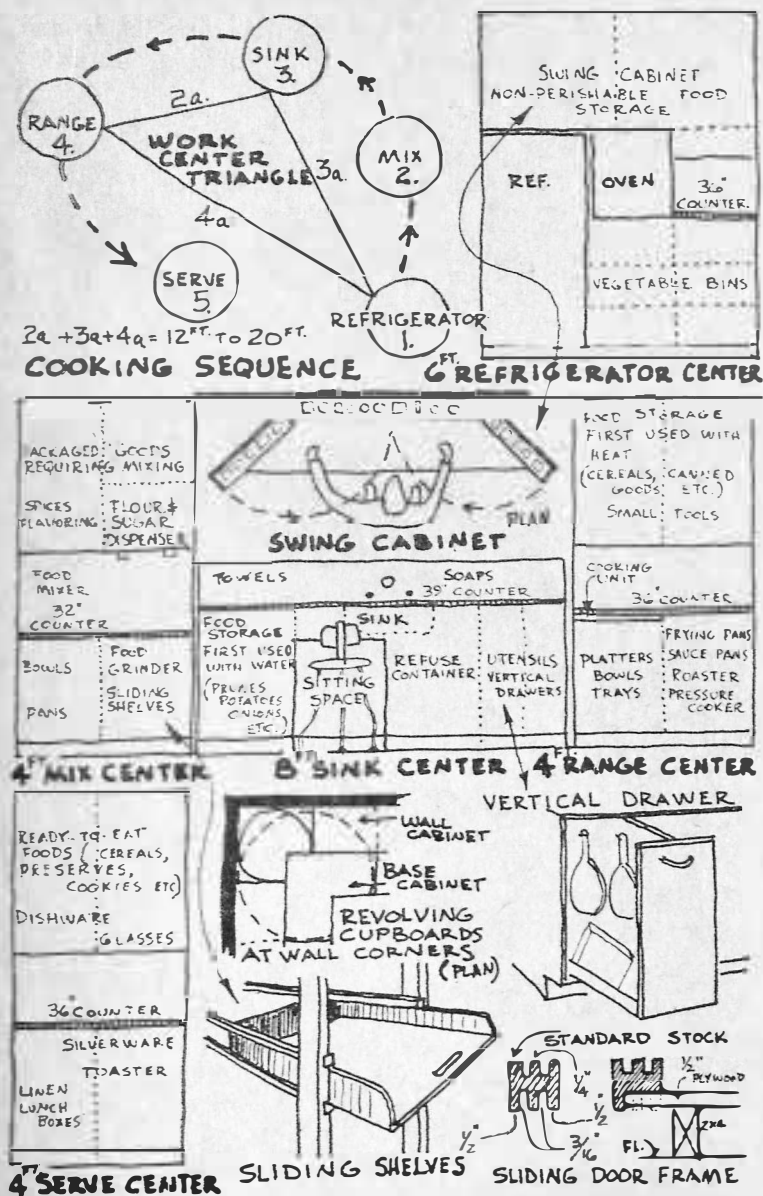 SINK
3.
2a.
RANGE
4.
WORK
CENTER
TRIANGLE
3a.
4a
MIX
2.
SERVE
5.
REFRIGERATOR
1.
2a + 3a + 4a = 12 FT. TO 20 FT.
COOKING SEQUENCE
SWING CABINET
NON-PERISHABLE FOOD
STORAGE
REF.
OVEN
36"
COUNTER.
VEGETABLE BINS
6 FT. REFRIGERATOR CENTER
ACKAGED GOODS
REQUIRING MIXING
SPICES
FLAVORING
FLOUR &
SUGAR
DISPENSE
FOOD
MIXER
32"
COUNTER
BOWLS
PANS
FOOD
GRINDER
SLIDING
SHELVES
4 FT MIX CENTER
PLAN
SWING CABINET
TOWELS
SOAPS
39" COUNTER
FOOD
STORAGE
FIRST USED
WITH WATER
(PRUNES
POTATOES
ONIONS
ETC.)
SINK
SITTING
SPACE
REFUSE
CONTAINER
UTENSILS
VERTICAL
DRAWERS
8 FT SINK CENTER
FOOD STORAGE
FIRST USED WITH
HEAT
(CEREALS, CANNED
GOODS ETC.)
SMALL TOOLS
COOKING
UNIT
36" COUNTER
PLATTERS
BOWLS
TRAYS
FRYING PANS
SAUCE PANS
ROASTER
PRESSURE
COOKER
4 F RANGE CENTER
READY-TO-EAT
FOODS (CEREALS,
PRESERVES,
COOKIES ETC)
DISHWARE
GLASSES
36" COUNTER
SILVERWARE
TOASTER
LINEN
LUNCH
BOXES
4 FT SERVE CENTER
WALL
CABINET
BASE
CABINET
REVOLVING
CUPBOARDS
AT WALL CORNERS
(PLAN)
SLIDING SHELVES
VERTICAL DRAWER
STANDARD STOCK
1/4"
1/2"
1/2"
3/16"
1/2"
PLYWOOD
2x4
FL.
SLIDING DOOR FRAME